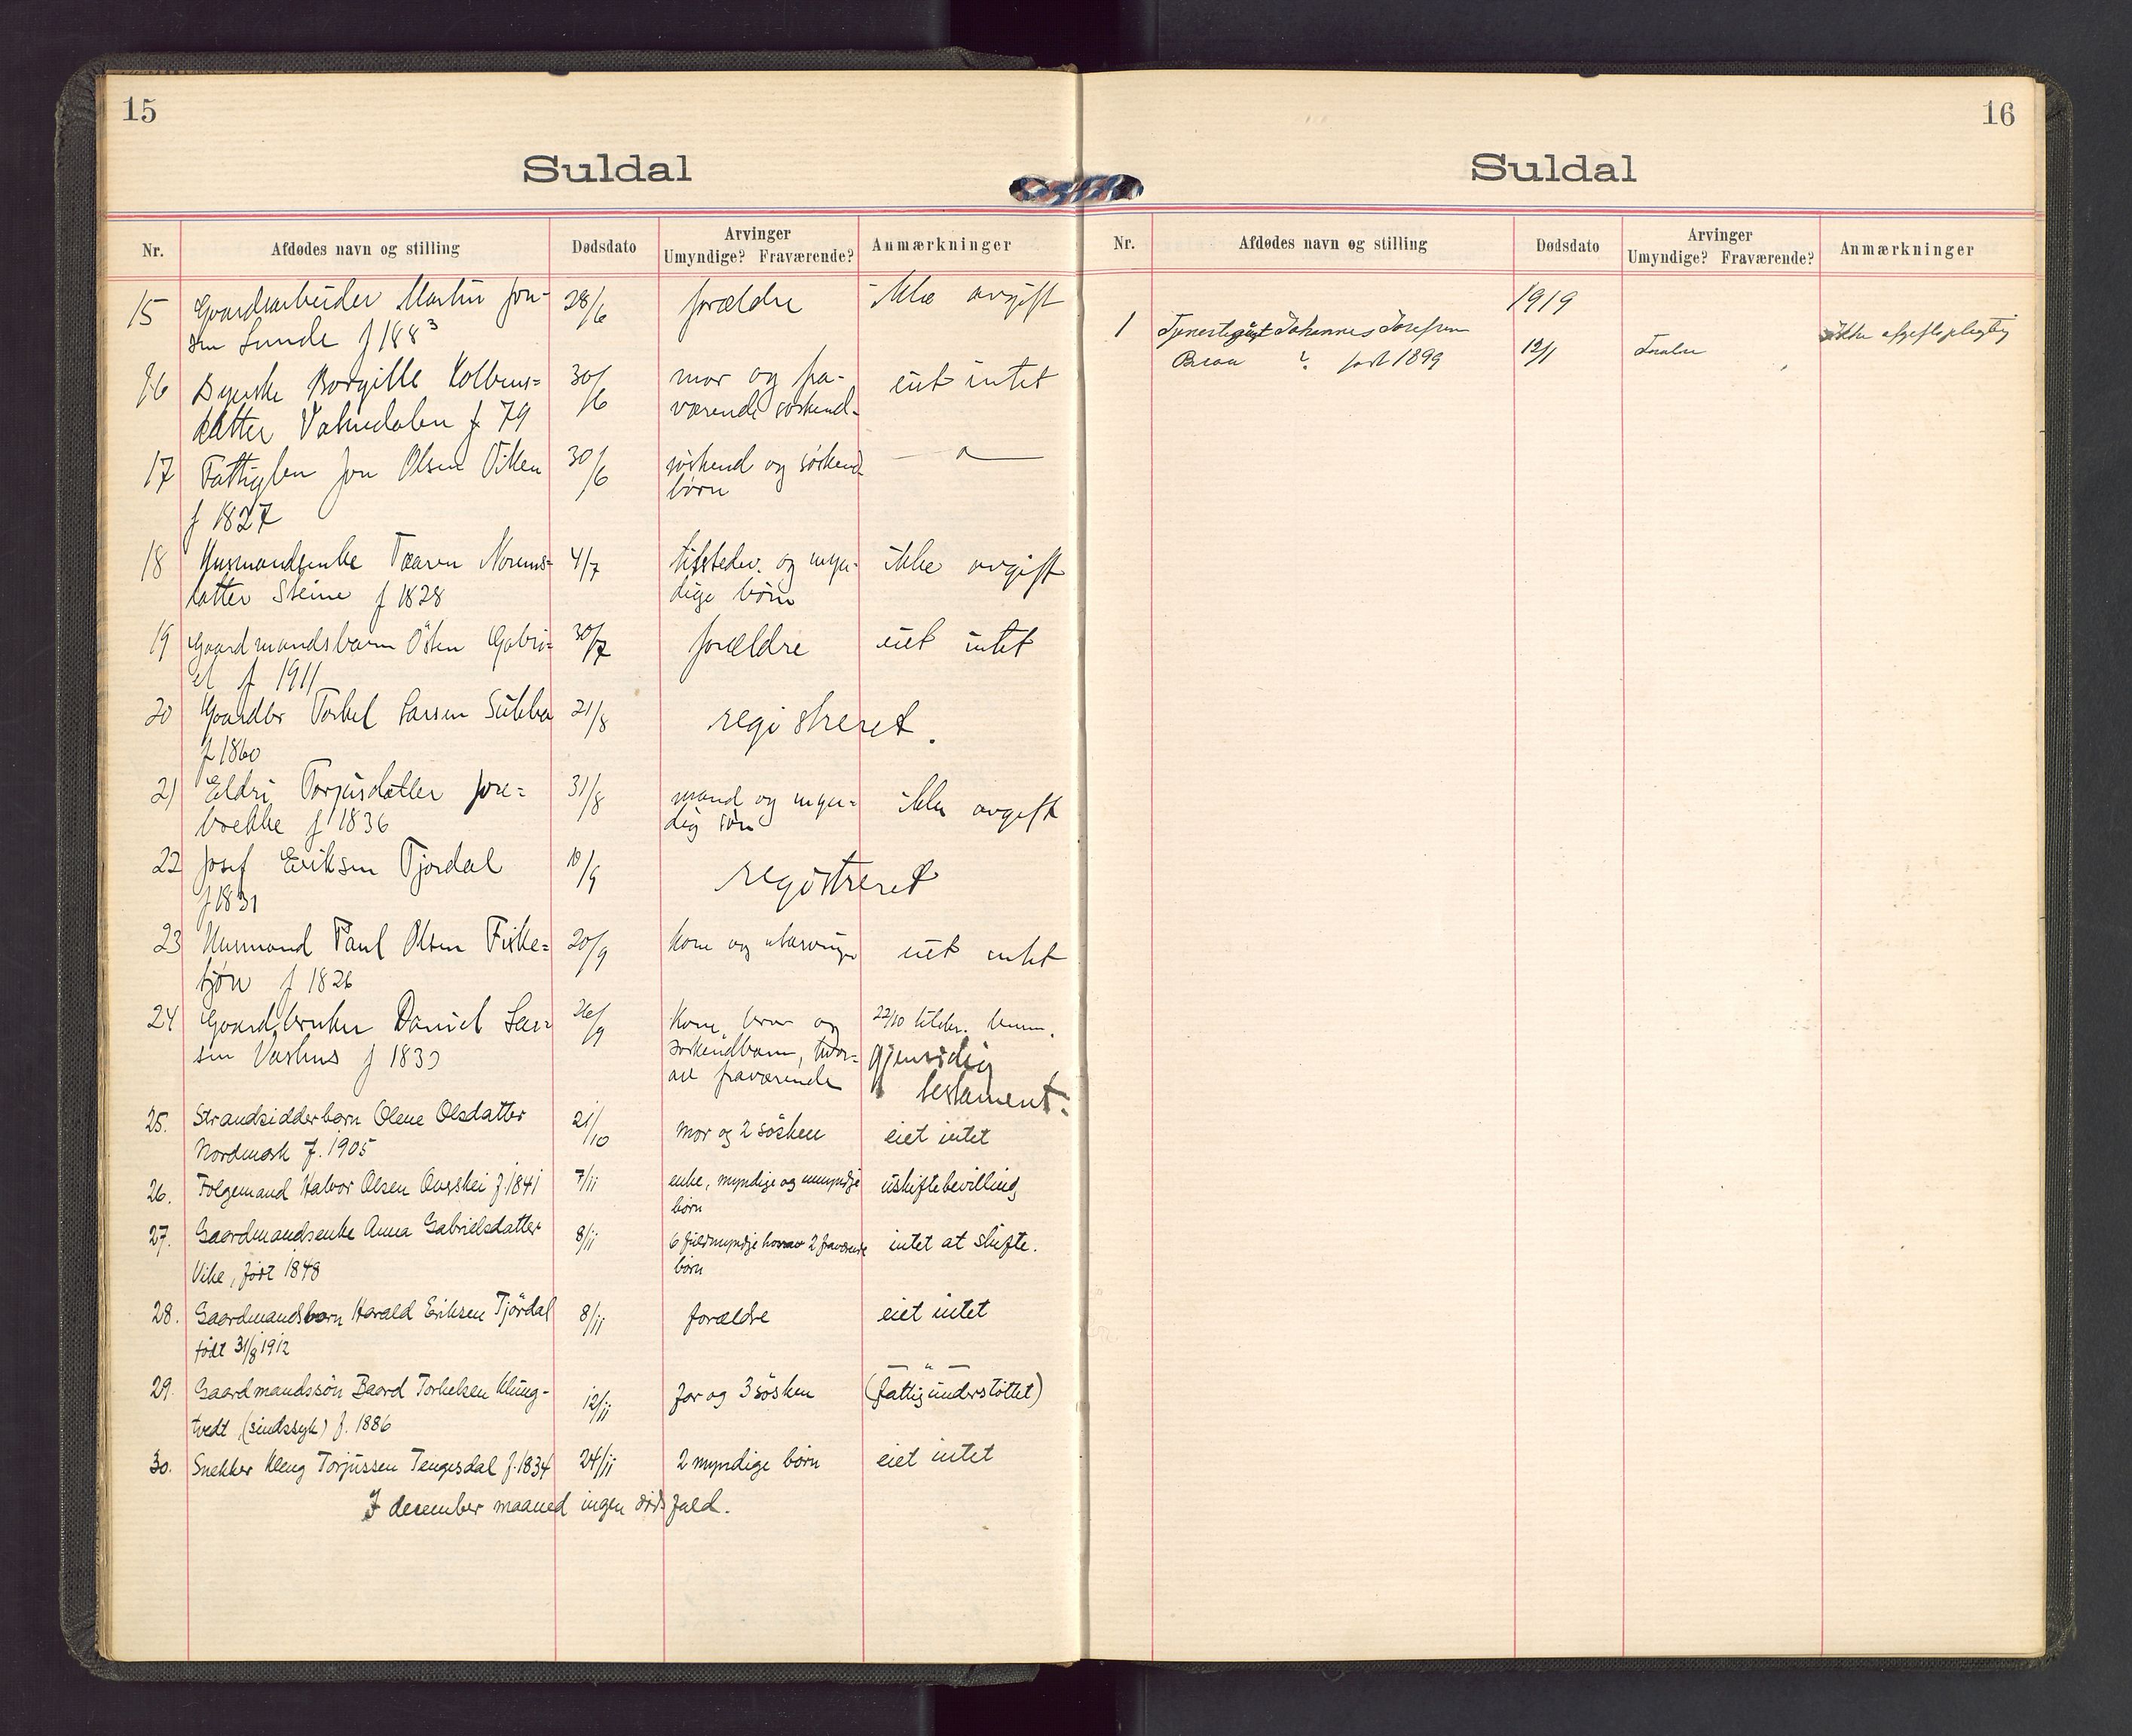 15
Suldal
Nr. Afdødes navn og stilling Dødsdato Arvinger Umyndige? Fraværende? Anmærkninger
15 Gaardarbeider Martin Jon- 28/6 forældre ikke avgift
sen Lunde f 1883
16 Borgille Kolbens= 30/6 mor og fra- eiet intet
datter f 79 værende søskend-
17 Fattiglem Jon Olsen Viken 30/6 søskend og søskend
f 1827 børn
18 Husmandsenke Taaren 4/7 tilstedev. og myn- ikke avgift
datter Steine f 1828 dige børn
19 Gaardmandsbarn Östen Gabri= 30/7 forældre eiet intet
el f 1911
20 Gaardbr Torkel Larsen 21/8 registreret.
f 1860
21 Eldri Torjusdatter Jore= 31/8 mand og myn= ikke avgift
brekke f 1836 dig søn
22 Josef Eriksen Tjordal 10/9 registreret
f 1831
23 Husmand Paul Olsen Fiske= 20/9 kone og utarvinger eiet intet
tjøn f 1826
24 Gaardbruker Daniel Lar= 26/9 Kone, bror og 22/10
sen Vashus søskendbarn, hvor= gjensidig
av fraværende testament.
25. Strandsidderbarn Olene Olsdatter 21/10 mor og 2 søsken eiet intet
Nordmark f. 1905
26. Folgemand Halvor Olsen f. 1841 7/11 enke, myndige og umyndige uskiftebevilling
børn
27. Gaardmandsenke Anna Gabrielsdatter 8/11 6 fuldmyndige horav 2 fraværende intet at skifte.
Vike, født 1848 børn
28. Gaardmandsbarn Harald Eriksen Tjördal 8/11 forældre eiet intet
født 31/8 1912
29. Gaardmandssön Baard Torkelsen Kling- 12/11 far og 3 søsken — " — (fattigunderstöttet)
tvedt (sindssyk) f. 1886
30. Snekker Kleng Torjussen Tengesdal f. 1834 24/11 2 myndige børn eiet intet
I december maaned ingen dødsfald.
16
Suldal
Nr. Afdødes navn og stilling Dødsdato Arvinger Umyndige? Fraværende? Anmærkninger
1919
1 Tjenestegut Johannes Josefsen ikke afgiftspligtig
født 1899 12/1